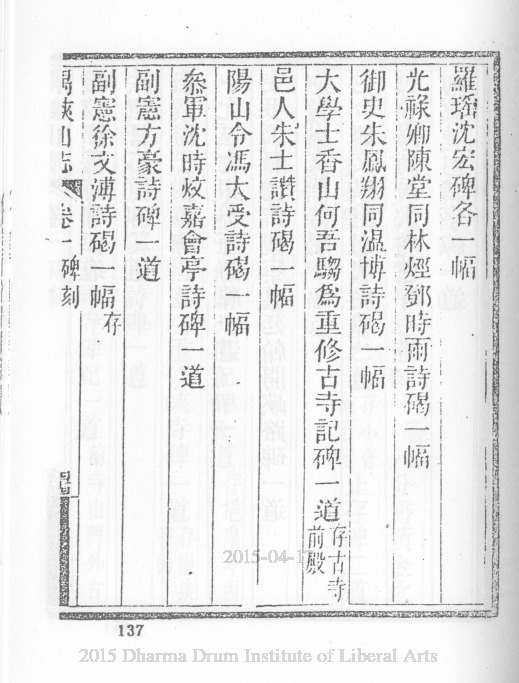 羅璿沈宏碑各一幅
光祿卿陳堂同林烴鄧時雨詩碣一幅
御史朱鳳翔同溫博詩碣一幅
大學士香山何吾騶爲重修古寺記碑一道存古寺前殿
邑人朱士讚詩碣一幅
陽山令馮大受詩碣一幅
叅軍沈時
嘉會亭詩碑一道
副憲方豪詩碑一道
副憲徐文溥詩碣一幅存
峽山志 卷一碑刻
137
2015-04-17
2015 Dharma Drum Institute of Liberal Arts